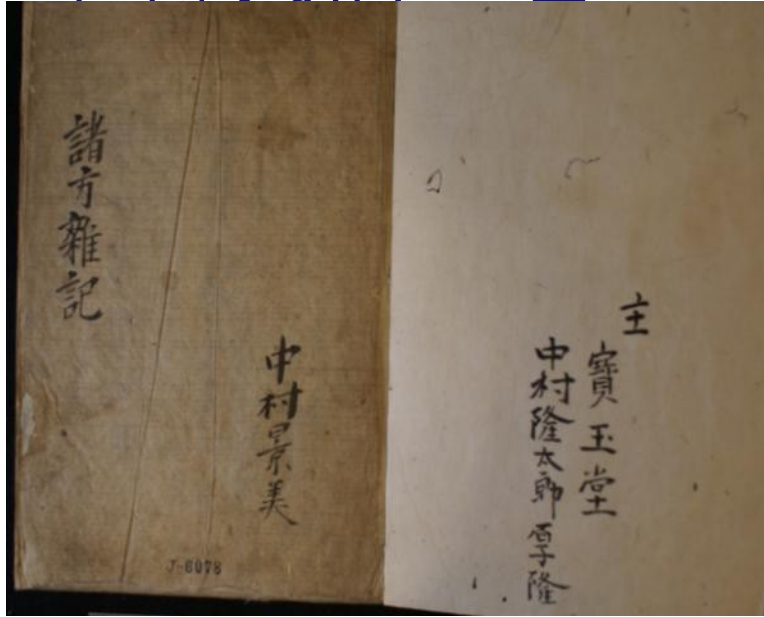 主
寶玉堂
中村隆太郎 厚隆
中村景美
諸方雜記
J-6078